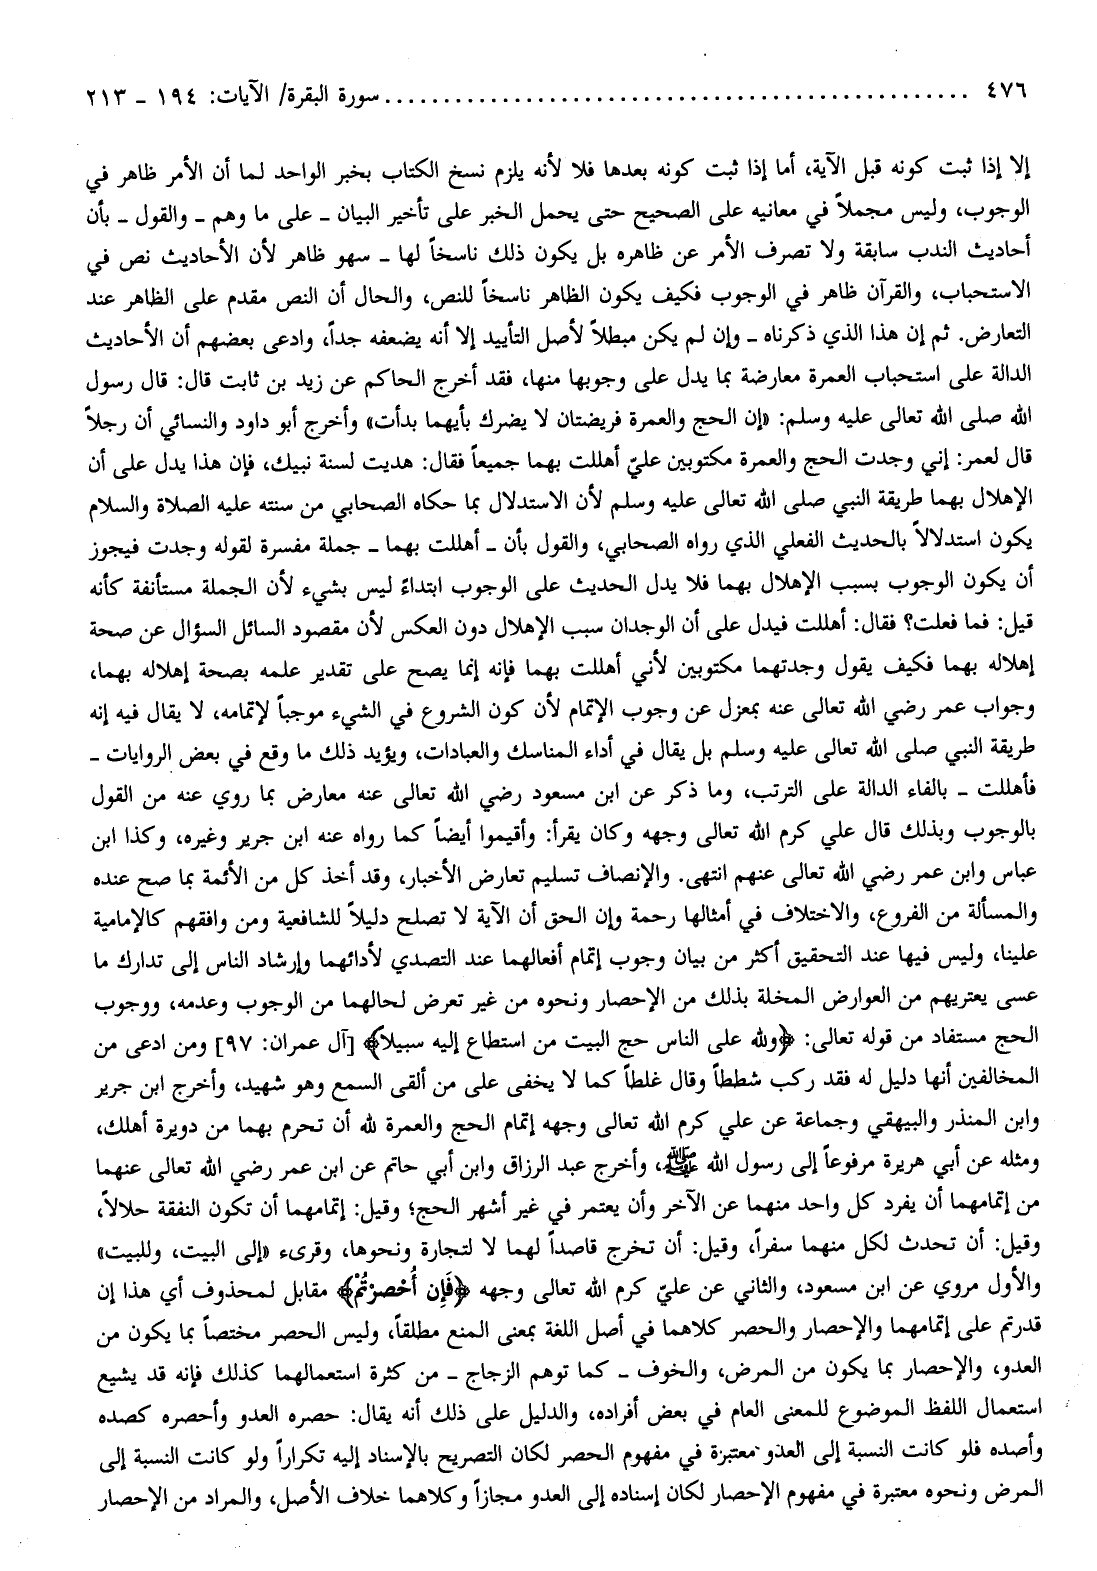 ٤٧٦ ................................................. سورة البقرة/ الآيات: ١٩٤ ـ ٢١٣
إلا إذا ثبت كونه قبل الآية، أما إذا ثبت كونه بعدها فلا لأنه يلزم نسخ الكتاب بخبر الواحد لما أن الأمر ظاهر في
الوجوب، وليس مجملاً في معانيه على الصحيح حتى يحمل الخبر على تأخير البيان ـ على ما وهم ـ والقول ـ بأن
أحاديث الندب سابقة ولا تصرف الأمر عن ظاهره بل يكون ذلك ناسخاً لها ـ سهو ظاهر لأن الأحاديث نص في
الاستحباب، والقرآن ظاهر في الوجوب فكيف يكون الظاهر ناسخاً للنص، والحال أن النص مقدم على الظاهر عند
التعارض. ثم إن هذا الذي ذكرناه ـ وإن لم يكن مبطلاً لأصل التأييد إلا أنه يضعفه جداً، وادعى بعضهم أن الأحاديث
الدالة على استحباب العمرة معارضة بما يدل على وجوبها منها، فقد أخرج الحاكم عن زيد بن ثابت قال: قال رسول
الله صلى الله تعالى عليه وسلم: «إن الحج والعمرة فريضتان لا يضرك بأيهما بدأت» وأخرج أبو داود والنسائي أن رجلاً
قال لعمر: إني وجدت الحج والعمرة مكتوبين عليّ أهللت بهما جميعاً فقال: هديت لسنة نبيك، فإن هذا يدل على أن
الإهلال بهما طريقة النبي صلى الله تعالى عليه وسلم لأن الاستدلال بما حكاه الصحابي من سنته عليه الصلاة والسلام
يكون استدلالاً بالحديث الفعلي الذي رواه الصحابي، والقول بأن ـ أهللت بهما ـ جملة مفسرة لقوله وجدت فيجوز
أن يكون الوجوب بسبب الإهلال بهما فلا يدل الحديث على الوجوب ابتداءً ليس بشيء لأن الجملة مستأنفة كأنه
قيل: فما فعلت؟ فقال: أهللت فيدل على أن الوجدان سبب الإهلال دون العكس لأن مقصود السائل السؤال عن صحة
إهلاله بهما فكيف يقول وجدتهما مكتوبين لأني أهللت بهما فإنه إنما يصح على تقدير علمه بصحة إهلاله بهما،
وجواب عمر رضي الله تعالى عنه بمعزل عن وجوب الإتمام لأن كون الشروع في الشيء موجباً لإتمامه، لا يقال فيه إنه
طريقة النبي صلى الله تعالى عليه وسلم بل يقال في أداء المناسك والعبادات، ويؤيد ذلك ما وقع في بعض الروايات ـ
فأهللت ـ بالفاء الدالة على الترتب، وما ذكر عن ابن مسعود رضي الله تعالى عنه معارض بما روي عنه من القول
بالوجوب وبذلك قال علي كرم الله تعالى وجهه وكان يقرأ: وأقيموا أيضاً كما رواه عنه ابن جرير وغيره، وكذا ابن
عباس وابن عمر رضي الله تعالى عنهم انتهى. والإنصاف تسليم تعارض الأخبار، وقد أخذ كل من الأئمة بما صح عنده
والمسألة من الفروع، والاختلاف في أمثالها رحمة وإن الحق أن الآية لا تصلح دليلاً للشافعية ومن وافقهم كالإمامية
علينا، وليس فيها عند التحقيق أكثر من بيان وجوب إتمام أفعالهما عند التصدي لأدائهما وإرشاد الناس إلى تدارك ما
عسى يعتريهم من العوارض المخلة بذلك من الإحصار ونحوه من غير تعرض لحالهما من الوجوب وعدمه، ووجوب
الحج مستفاد من قوله تعالى: ﴿ولله على الناس حج البيت من استطاع إليه سبيلاً﴾ [آل عمران: ٩٧] ومن ادعى من
المخالفين أنها دليل له فقد ركب شططاً وقال غلطاً كما لا يخفى على من ألقى السمع وهو شهيد، وأخرج ابن جرير
وابن المنذر والبيهقي وجماعة عن علي كرم الله تعالى وجهه إتمام الحج والعمرة لله أن تحرم بهما من دويرة أهلك،
ومثله عن أبي هريرة مرفوعاً إلى رسول الله ﷺ، وأخرج عبد الرزاق وابن أبي حاتم عن ابن عمر رضي الله تعالى عنهما
من إتمامهما أن يفرد كل واحد منهما عن الآخر وأن يعتمر في غير أشهر الحج؛ وقيل: إتمامهما أن تكون النفقة حلالاً،
وقيل: أن تحدث لكل منهما سفراً، وقيل: أن تخرج قاصداً لهما لا لتجارة ونحوها، وقرىء «إلى البيت، وللبيت»
والأول مروي عن ابن مسعود، والثاني عن عليّ كرم الله تعالى وجهه ﴿فَإِن أُحْصِرْتُمْ﴾ مقابل لمحذوف أي هذا إن
قدرتم على إتمامهما والإحصار والحصر كلاهما في أصل اللغة بمعنى المنع مطلقاً، وليس الحصر مختصاً بما يكون من
العدو، والإحصار بما يكون من المرض، والخوف ـ كما توهم الزجاج ـ من كثرة استعمالهما كذلك فإنه قد يشيع
استعمال اللفظ الموضوع للمعنى العام في بعض أفراده، والدليل على ذلك أنه يقال: حصره العدو وأحصره كصده
وأصده فلو كانت النسبة إلى العدو معتبرة في مفهوم الحصر لكان التصريح بالإسناد إليه تكراراً ولو كانت النسبة إلى
المرض ونحوه معتبرة في مفهوم الإحصار لكان إسناده إلى العدو مجازاً وكلاهما خلاف الأصل، والمراد من الإحصار